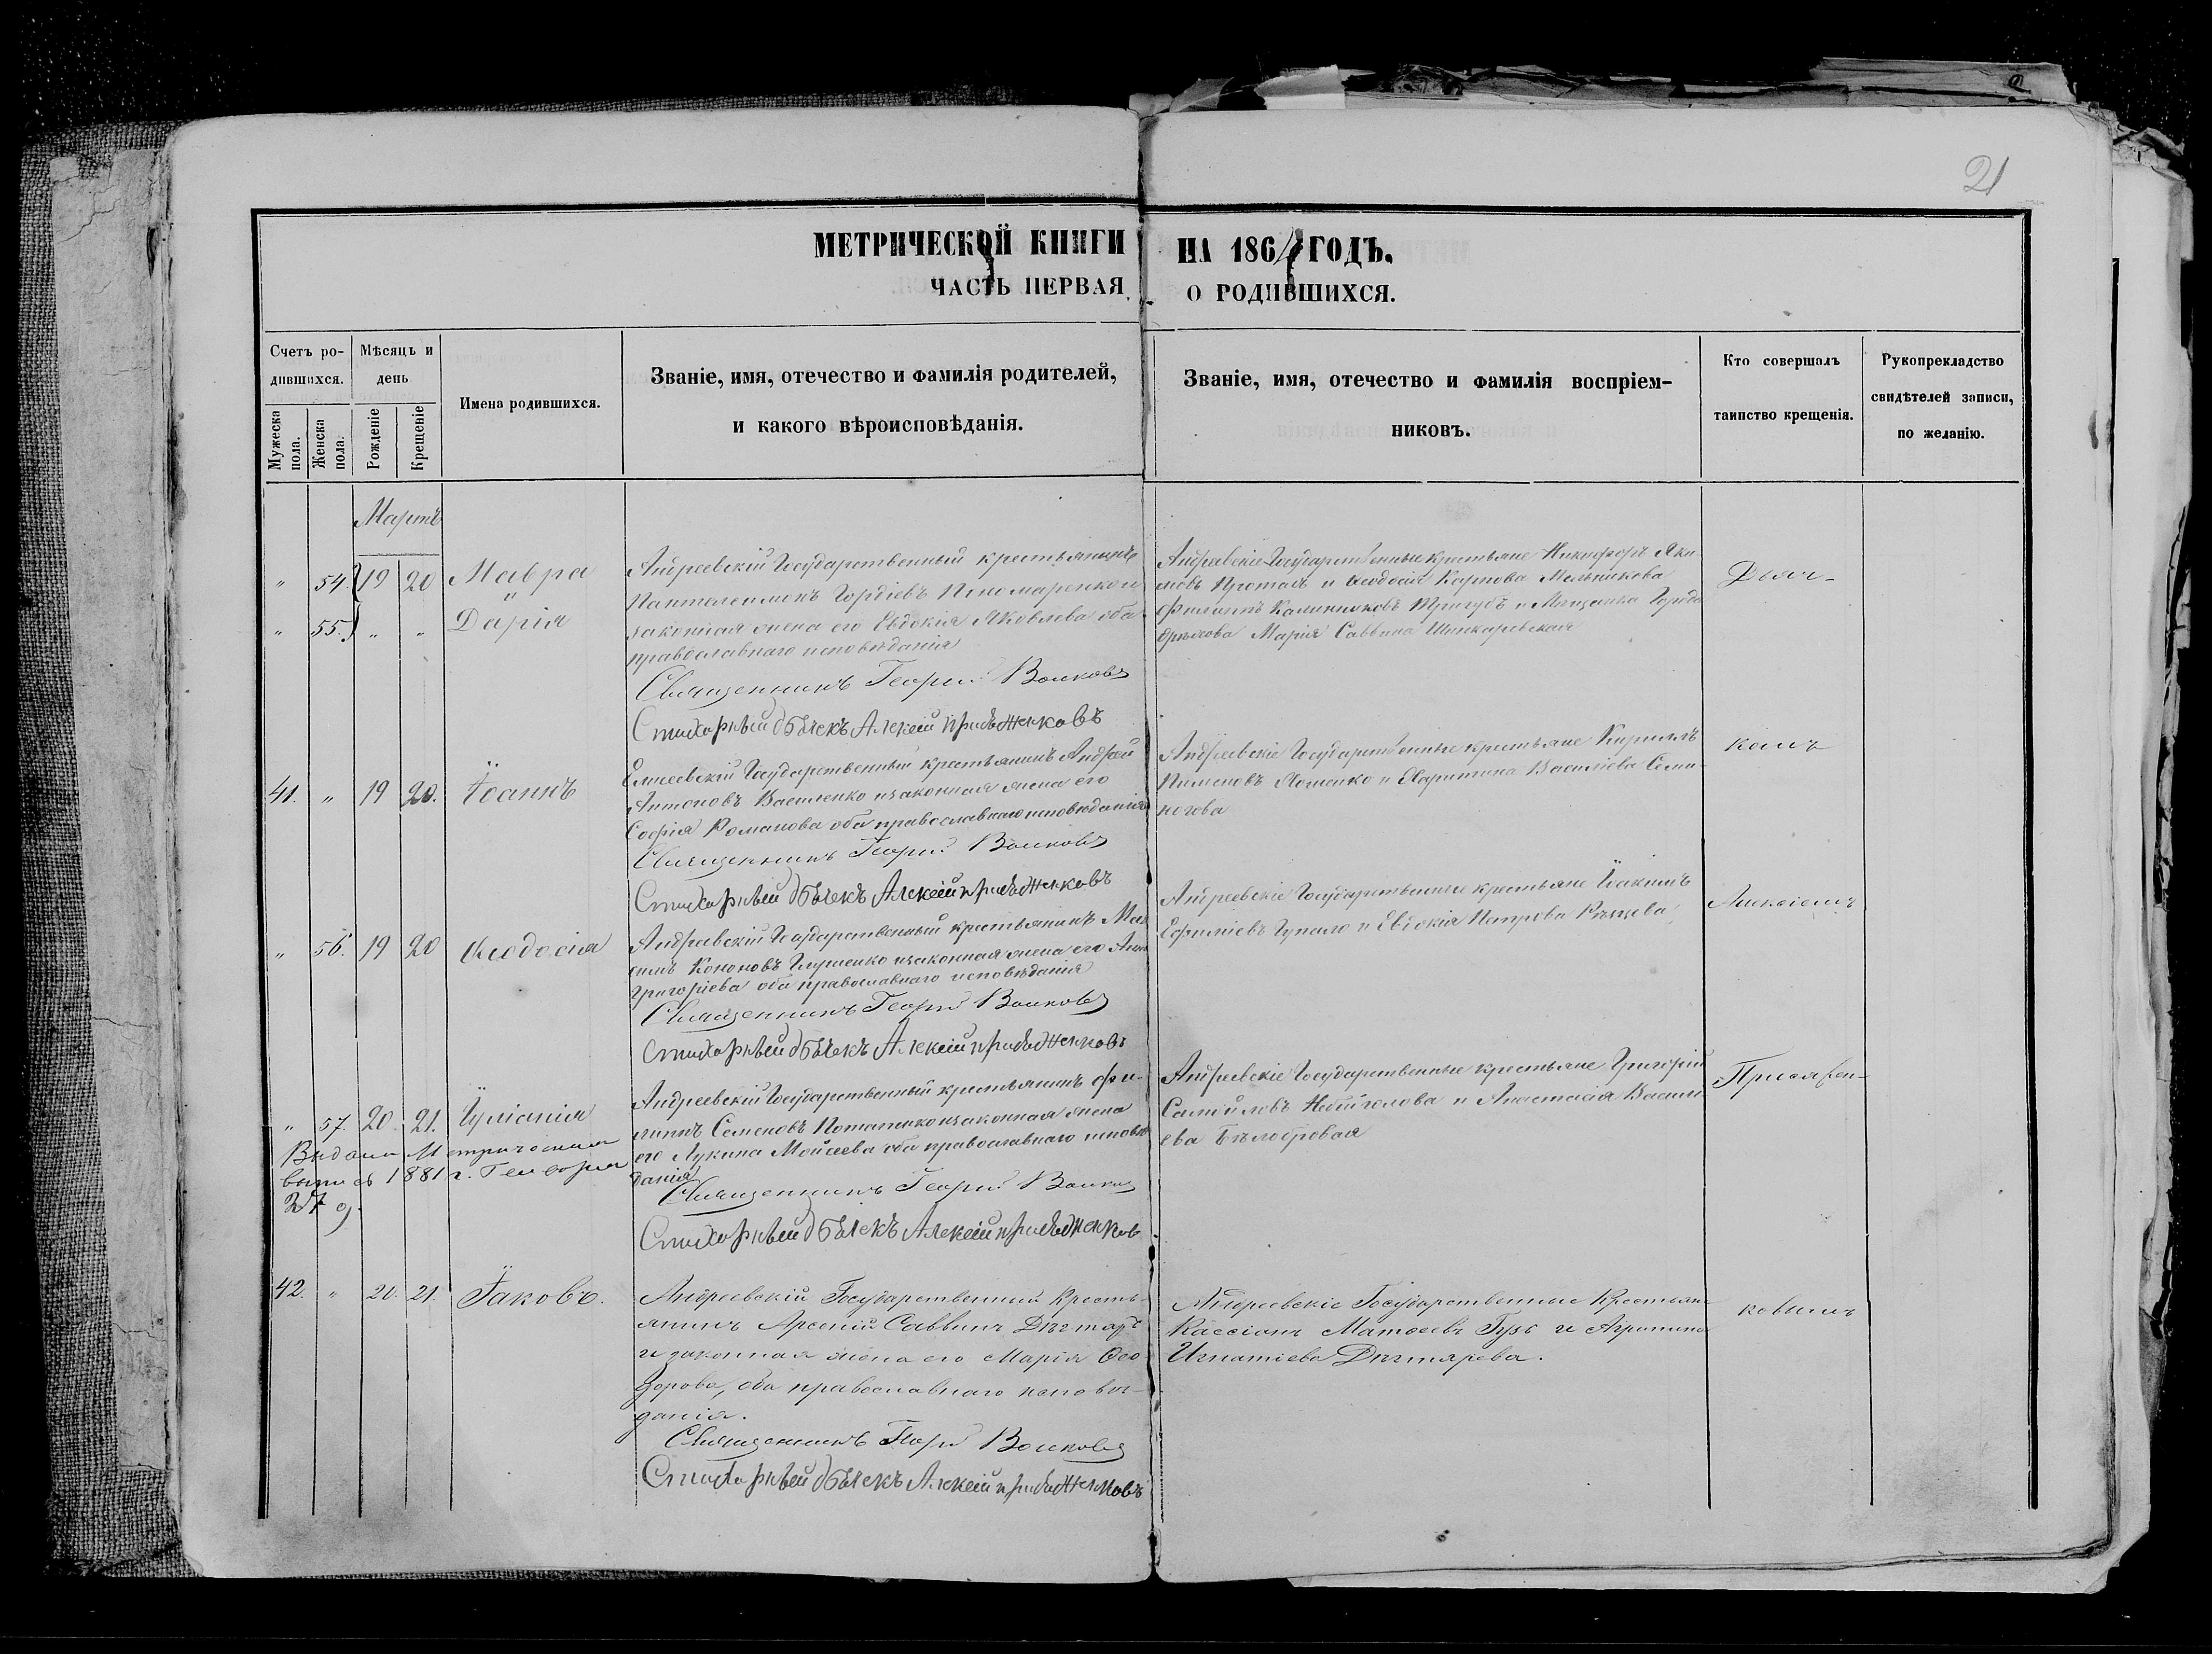 21
МЕТРИЧЕСКОЙ КНИГИ НА 1864 ГОДЪ.
ЧАСТЬ ПЕРВАЯ О РОДИВШИХСЯ.
Счетъ ро-
дившихся.
Мужеска
пола.
Женска
пола.
Мѣсяцъ и
день
Рожденіе
Крещеніе
Имена родившихся.
Званіе, имя, отечество и фамилія родителей,
и какого вѣроисповѣданія.
Званіе, имя, отечество и фамилія воспріем-
никовъ.
Кто совершалъ
таинство крещенія.
Рукоприкладство
свидѣтелей записи,
по желанію.
Мартъ
" 54. 19 20 Мавра
" 55. " " Дарія
Андреевскій Государственный крестьянинъ
Пантелеимонъ Гордіевъ Пономаренко и
законная жена его Евдокія Яковлева оба
православнаго исповѣданія
Священникъ Георгій Волковъ
Стихарный дьячекъ Алексій
Андреевскіе Государственные крестьяне Никифоръ Яки-
мовъ и Ѳеодосія Карпова Мельникова
Филиппъ Калинниковъ Тригубъ и Мѣщанка Города
Орѣхова Марія Саввина Шинкаревская
Дьяч-
41. " 19 20. Іоаннъ
Елисеевскій Государственный крестьянинъ Андрей
Антоновъ Василенко и законная жена его
Софія Романова оба православнаго исповѣданія
Священникъ Георгій Волковъ
Стихарный дьячекъ Алексій
Андреевскіе Государственные крестьяне Кириллъ
Пименовъ и Харитина Василіева Семи-
ногова
комъ
" 56. 19 20 Ѳеодосія
Андреевскій Государственный крестьянинъ Мак-
симъ Кононовъ Глущенко и законная жена его Анна
Григоріева оба православнаго исповѣданія
Священникъ Георгій Волковъ
Стихарный дьячекъ Алексій
Андреевскіе Государственные крестьяне Іоакимъ
Ефиміевъ Гупало и Евдокія Петрова
Алексіемъ
" 57. 20. 21. Іуліанія
Выдана Метрическая
выпись 1881 г. Генваря
27 д.
Андреевскій Государственный крестьянинъ Фи-
липпъ Семеновъ Потапенко и законная жена
его Лукина Моисеева оба православнаго исповѣ-
данія
Священникъ Георгій Волковъ
Стихарный дьячекъ Алексій
Андреевскіе Государственные крестьяне Григорій
Самойловъ и Анастасія Васили-
ева Бѣлобровая
42. " 20. 21. Іаковъ.
Андреевскій Государственный Кресть-
янинъ Арсеній Саввинъ Дегтярь
и законная жена его Марія Ѳео-
дорова, оба православнаго исповѣ-
данія.
Священникъ Георгій Волковъ
Стихарный дьячекъ Алексій
Андреевскіе Государственные Крестьяне
Кассіанъ Матѳеевъ Гузь и Агрипина
Игнатіева Дегтярева.
ковымъ